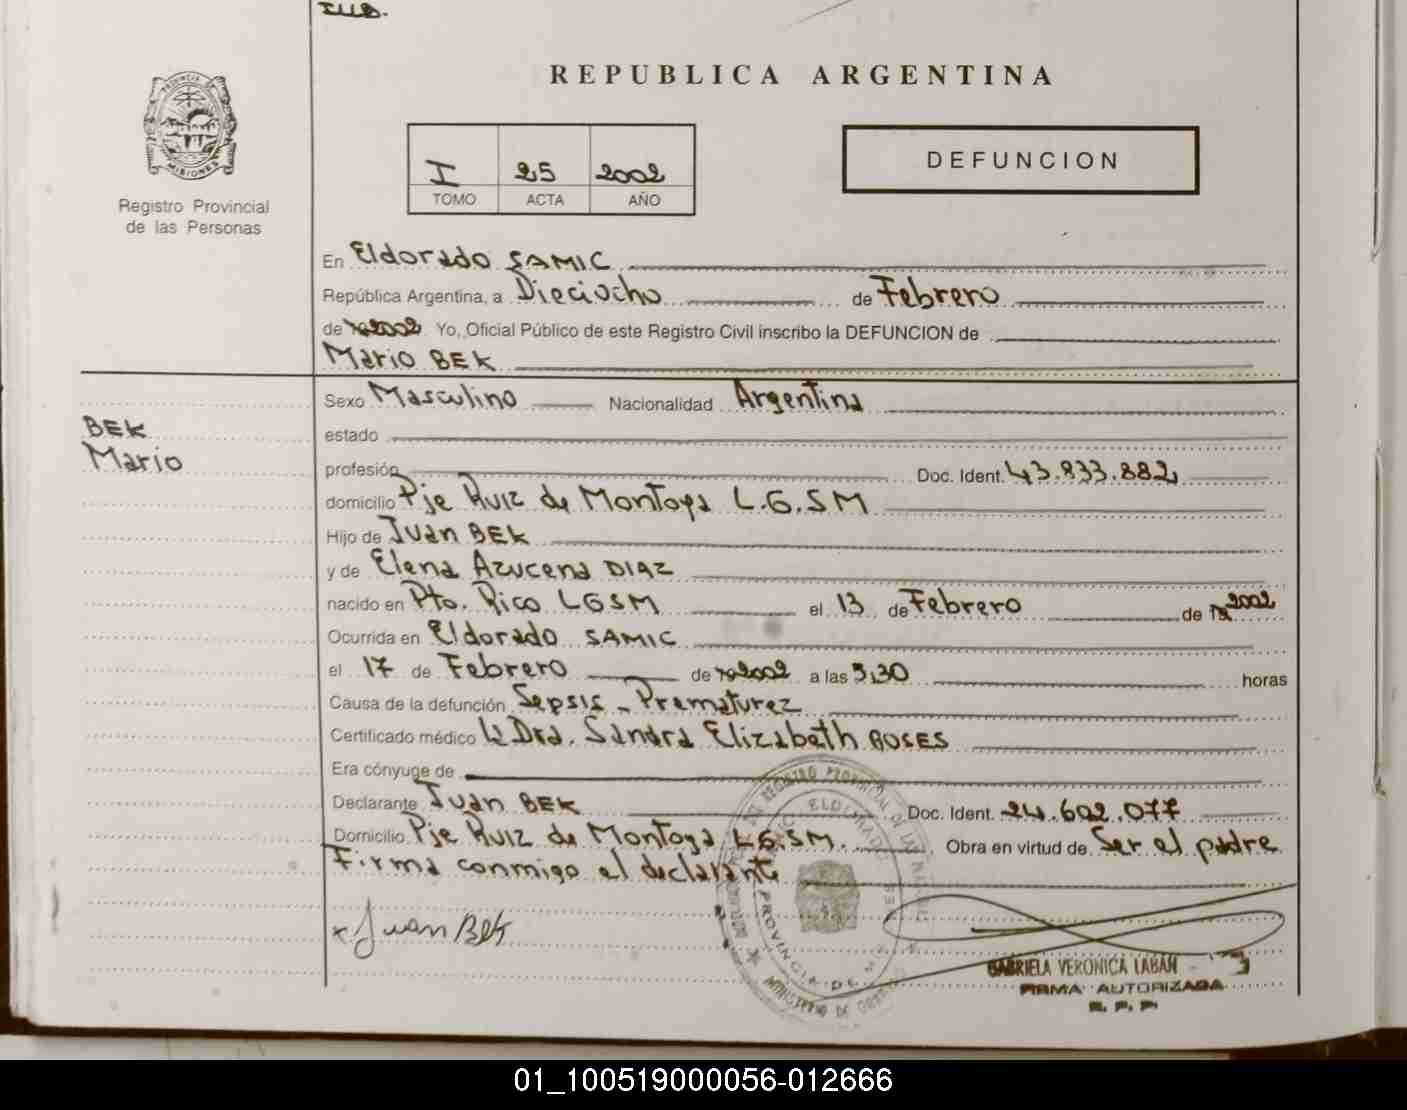 REPUBLICA ARGENTINA
DEFUNCION
I 25 2002
TOMO ACTA AÑO
PROVINCIA DE
MISIONES
Registro Provincial
de las Personas
En Eldorado SAMIC
República Argentina, a Dieciocho de Febrero
de 2002 Yo, Oficial Público de este Registro Civil inscribo la DEFUNCION de
Mario BEK
Sexo Masculino Nacionalidad Argentina
BEK
Mario
estado
profesión Doc. Ident. 43.833.882
domicilio Pje Ruiz de Montoya L.G.SM
Hijo de Juan BEK
y de Elena Azucena DIAZ
nacido en Pto. Rico LGSM el 13 de Febrero de 2002
Ocurrida en Eldorado SAMIC
el 17 de Febrero de 2002 a las 3,30 horas
Causa de la defunción Sepsis - Prematurez
Certificado médico La Dra. Sandra Elizabeth
Era cónyuge de
Declarante Juan BEK Doc. Ident. 24.602.077
Domicilio Pje Ruiz de Montoya LG.SM. Obra en virtud de Ser el padre
Firma conmigo el declarante
x Juan Bek
ELDORADO
PROVINCIA DE
GABRIELA VERONICA LABAN
FIRMA AUTORIZADA
R. P. P.
01_100519000056-012666